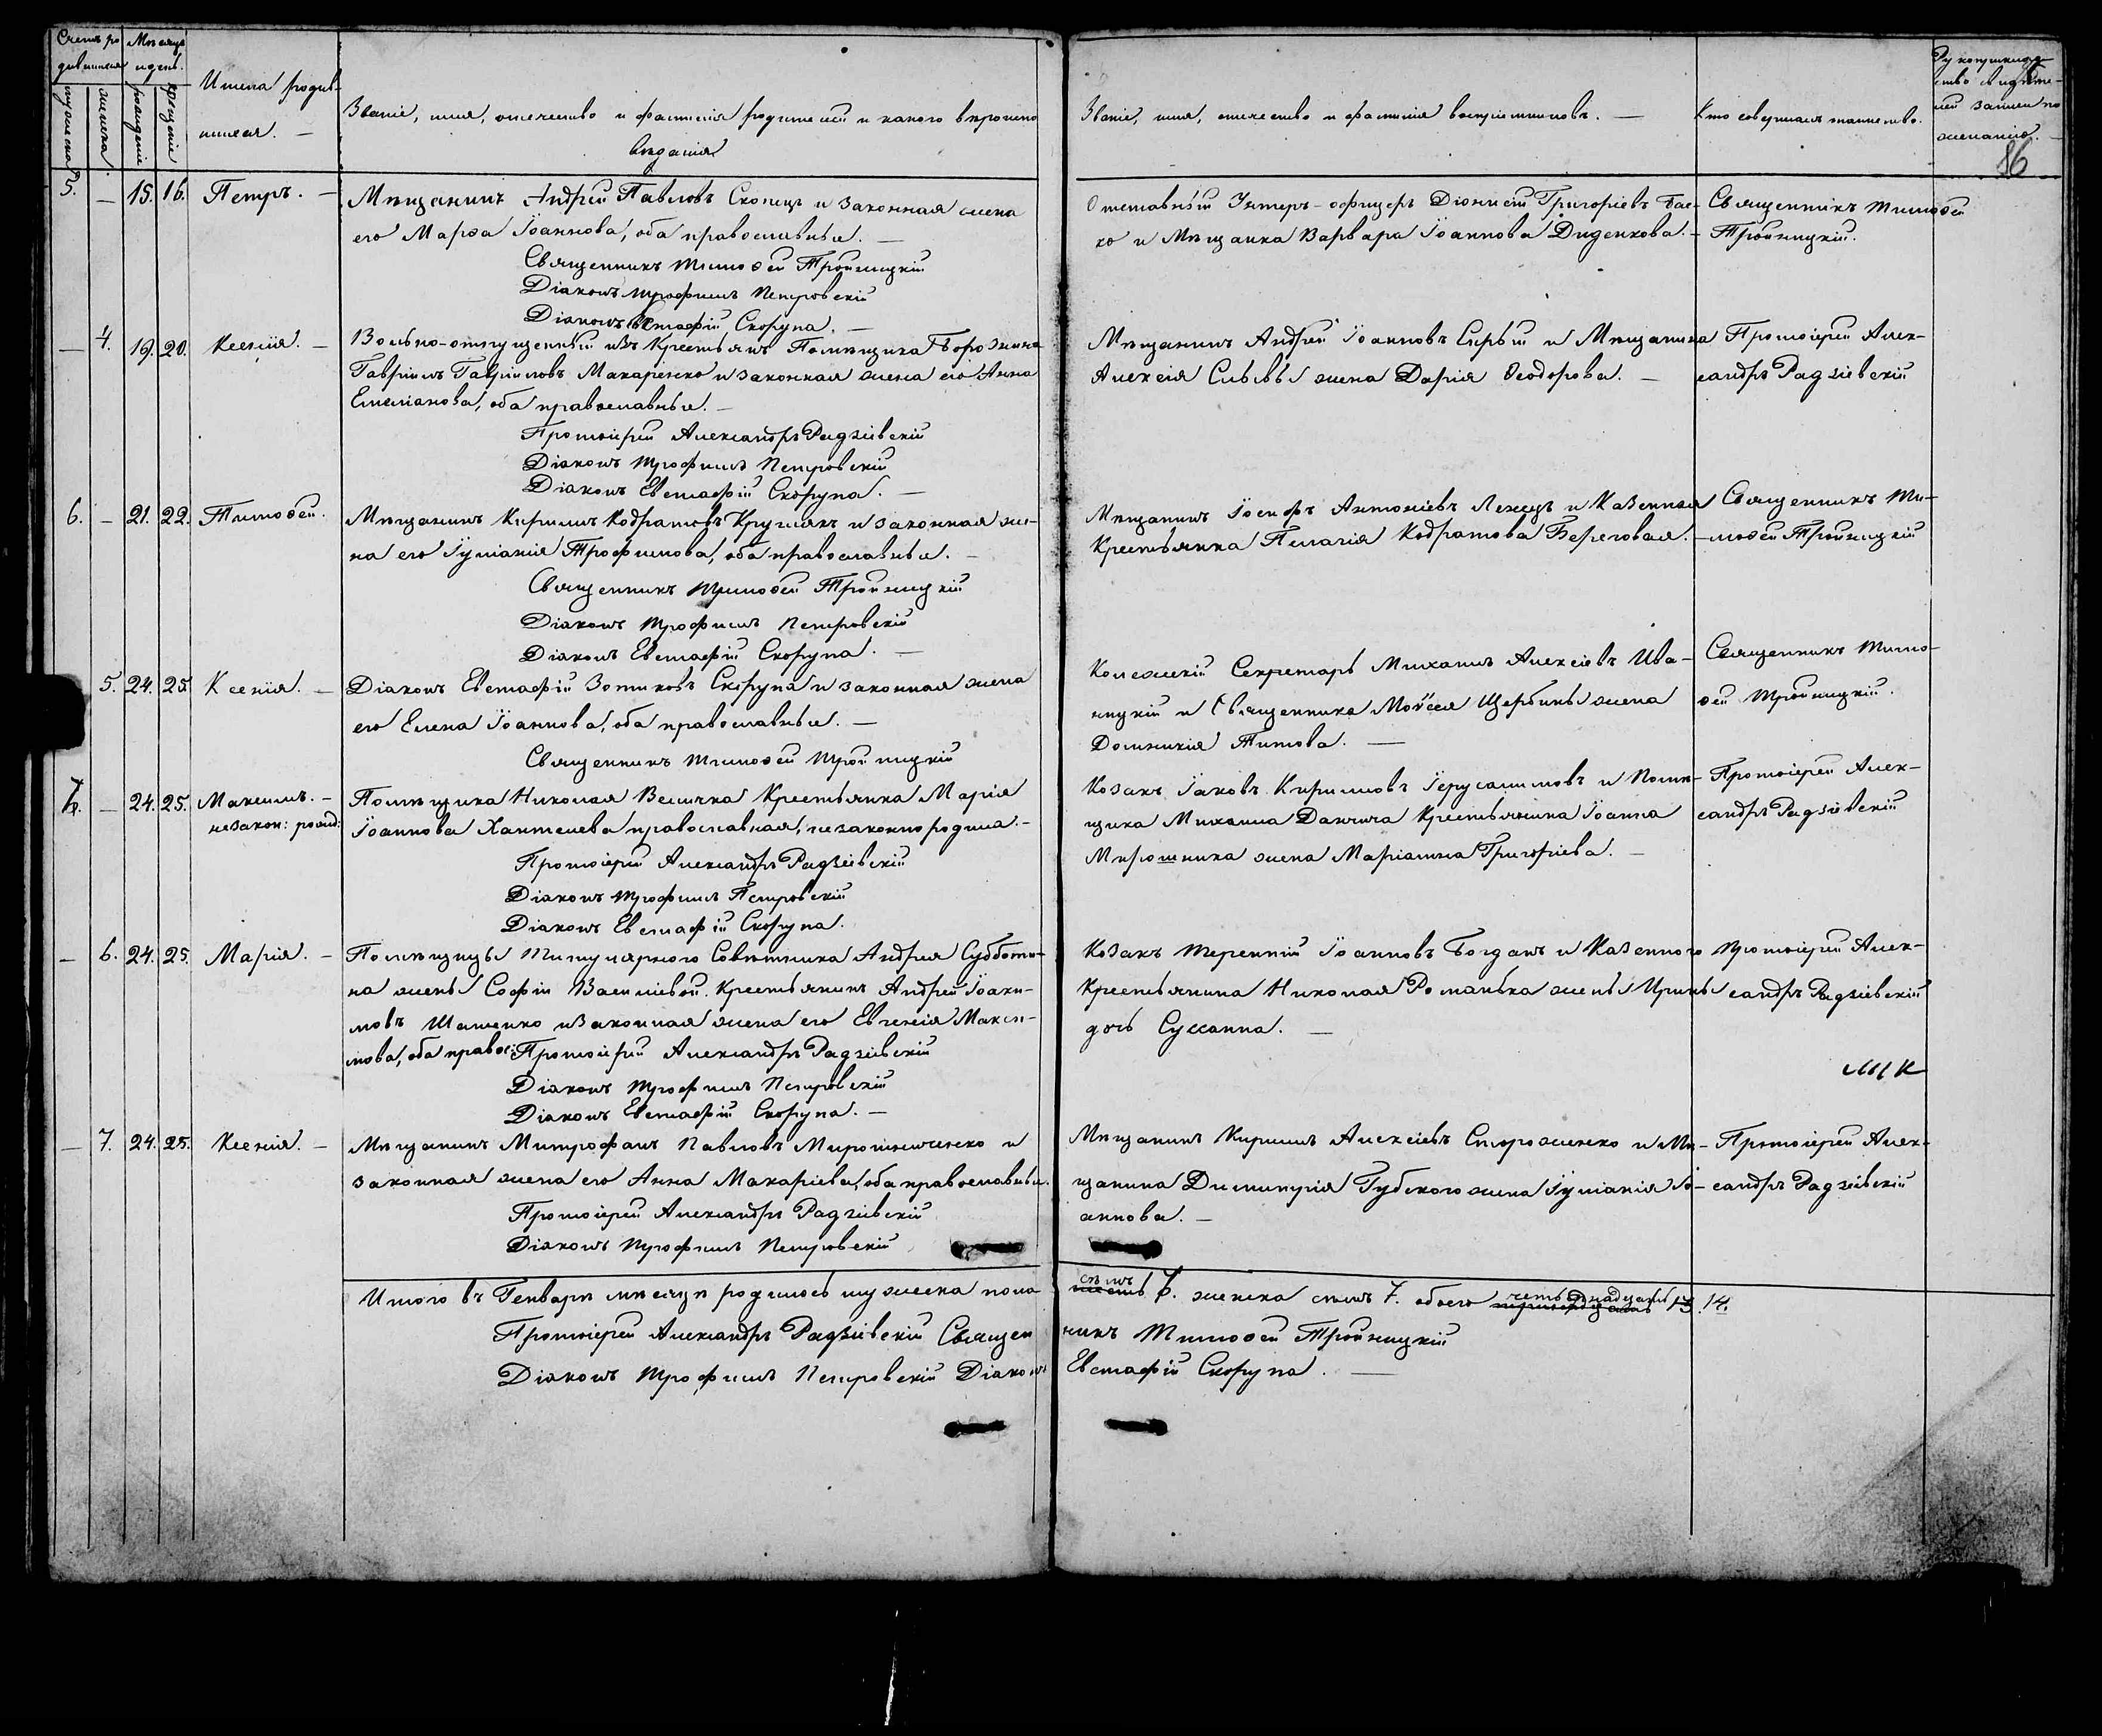 Счетъ ро-
дившихся
Мѣсяцъ
и день.
мужеска
женска
рожденіе
крещеніе
Имена родив-
шихся. —
Званіе, имя, отечество и фамилія родителей и какого вѣроиспо
вѣданія
Званіе, имя, отчество и фамилія воспріемниковъ. —
Кто совершалъ таинство.
Рукоприклад
ство свидѣте-
лей записи по
желанію. —
86
5. — 15. 16. Петръ. — Мѣщанинъ Андрей Павловъ Скопецъ и законная жена
его Марѳа Іоаннова, оба православные. —
Священникъ Тимоѳей Тройницкій
Діаконъ Трофимъ Петровскій
Діаконъ Евстафій Скорупа. —
Отставный Унтеръ-офицеръ Діонисій Григоріевъ Бас-
ко и Мѣщанка Варвара Іоаннова Диденкова. —
Священникъ Тимоѳей
Тройницкій.
— 4. 19. 20. Ксенія. — Вольно-отпущенный изъ Крестьянъ Помѣщика Борозенка
Гавріилъ Гавріиловъ Макаренко и законная жена его Анна
Емеліанова, оба православные. —
Протоіерей Александръ Радзіевскій
Діаконъ Трофимъ Петровскій
Діаконъ Евстафій Скорупа. —
Мѣщанинъ Андрей Іоанновъ Сѣрый и Мѣщанина
Алексія жена Дарія Ѳеодорова. —
Протоіерей Алек-
сандръ Радзіевскій
6. — 21. 22. Тимоѳей. Мѣщанинъ Кирилъ Кодратовъ Круглякъ и законная же-
на его Іуліанія Трофимова, оба православные. —
Священникъ Тимоѳей Тройницкій
Діаконъ Трофимъ Петровскій
Діаконъ Евстафій Скорупа. —
Мѣщанинъ Іосифъ Антоніевъ и Казенная
Крестьянка Пелагія Кодратова Береговая. —
Священникъ Ти-
моѳей Тройницкій
5. 24. 25. Ксенія. — Діаконъ Евстафій Зотиковъ Скорупа и законная жена
его Елена Іоаннова, оба православные. —
Священникъ Тимоѳей Тройницкій
Колежскій Секретарь Михаилъ Алексіевъ Ива-
ницкій и Священника Моѵсея Щербины жена
Домникія Титова. —
Священникъ Тимо-
ѳей Тройницкій.
7. — 24. 25. Максимъ. — Помѣщика Николая Велички Крестьянка Марія
незакон: рожд: Іоаннова Хантелева православная, незаконно родила. —
Протоіерей Александръ Радзіевскій
Діаконъ Трофимъ Петровскій
Діаконъ Евстафій Скорупа.
Козакъ Іаковъ Кирилловъ Іерусалимовъ и Помѣ-
щика Михаила Данчича Крестьянина Іоанна
Мирошника жена Маріанна Григоріева. —
Протоіерей Алек-
сандръ Радзіевскій
— 6. 24. 25. Марія. — Помѣщицы Титулярного Совѣтника Андрея Субботи-
на жены Софіи Василіевой Крестьянинъ Андрей Іоаки-
мовъ Шаменко и законная жена его Евгенія Макси-
мова, оба правос: Протоіерей Александръ Радзіевскій
Діаконъ Трофимъ Петровскій
Діаконъ Евстафій Скорупа. —
Козакъ Терентій Іоанновъ Богданъ и Казенного
Крестьянина Николая Романька жены Ирины
дочь Сусанна. —
Протоіерей Алек-
сандръ Радзіевскій
— 7. 24. 25. Ксенія. — Мѣщанинъ Митрофанъ Павловъ Мирошниченко и
законная жена его Анна Макаріева, оба православные.
Протоіерей Александръ Радзіевскій
Діаконъ Трофимъ Петровскій
Мѣщанинъ Кирилъ Алексіевъ Стороженко и Мѣ-
щанина Димитрія Губского жена Іуліанія Іо-
аннова. —
Протоіерей Алек-
сандръ Радзіевскій
Итого въ Генварѣ мѣсяцѣ родилось мужеска пола семъ шесть 7. женска семъ 7. обоего четырнадцать тринадцать 13. 14.
Протоіерей Александръ Радзіевскій Священникъ Тимоѳей Тройницкій
Діаконъ Трофимъ Петровскій Діаконъ Евстафій Скорупа. —